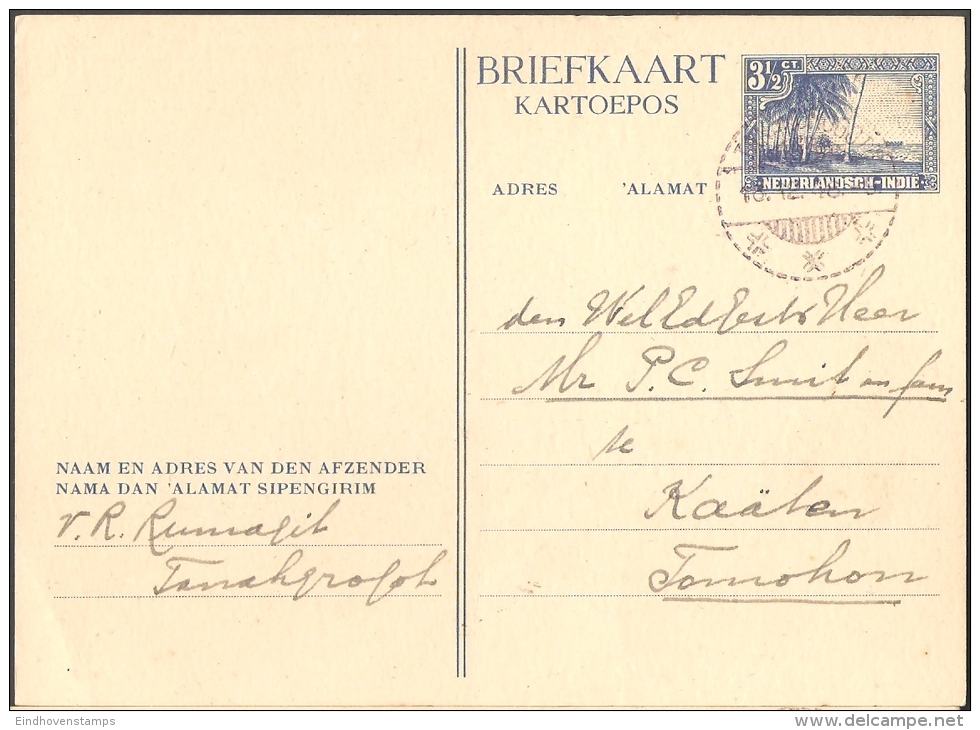 BRIEFKAART
KARTOEPOS
3½ CT.
NEDERLANDSCH-INDIE
ADRES 'ALAMAT
den Heer
Mr P.C. Smit en fam
te
Kaäten
Tomohon
NAAM EN ADRES VAN DEN AFZENDER
NAMA DAN 'ALAMAT SIPENGIRIM
V. R. Rumagit
Tanahgrogot
Eindhovenstamps
www.delcampe.net